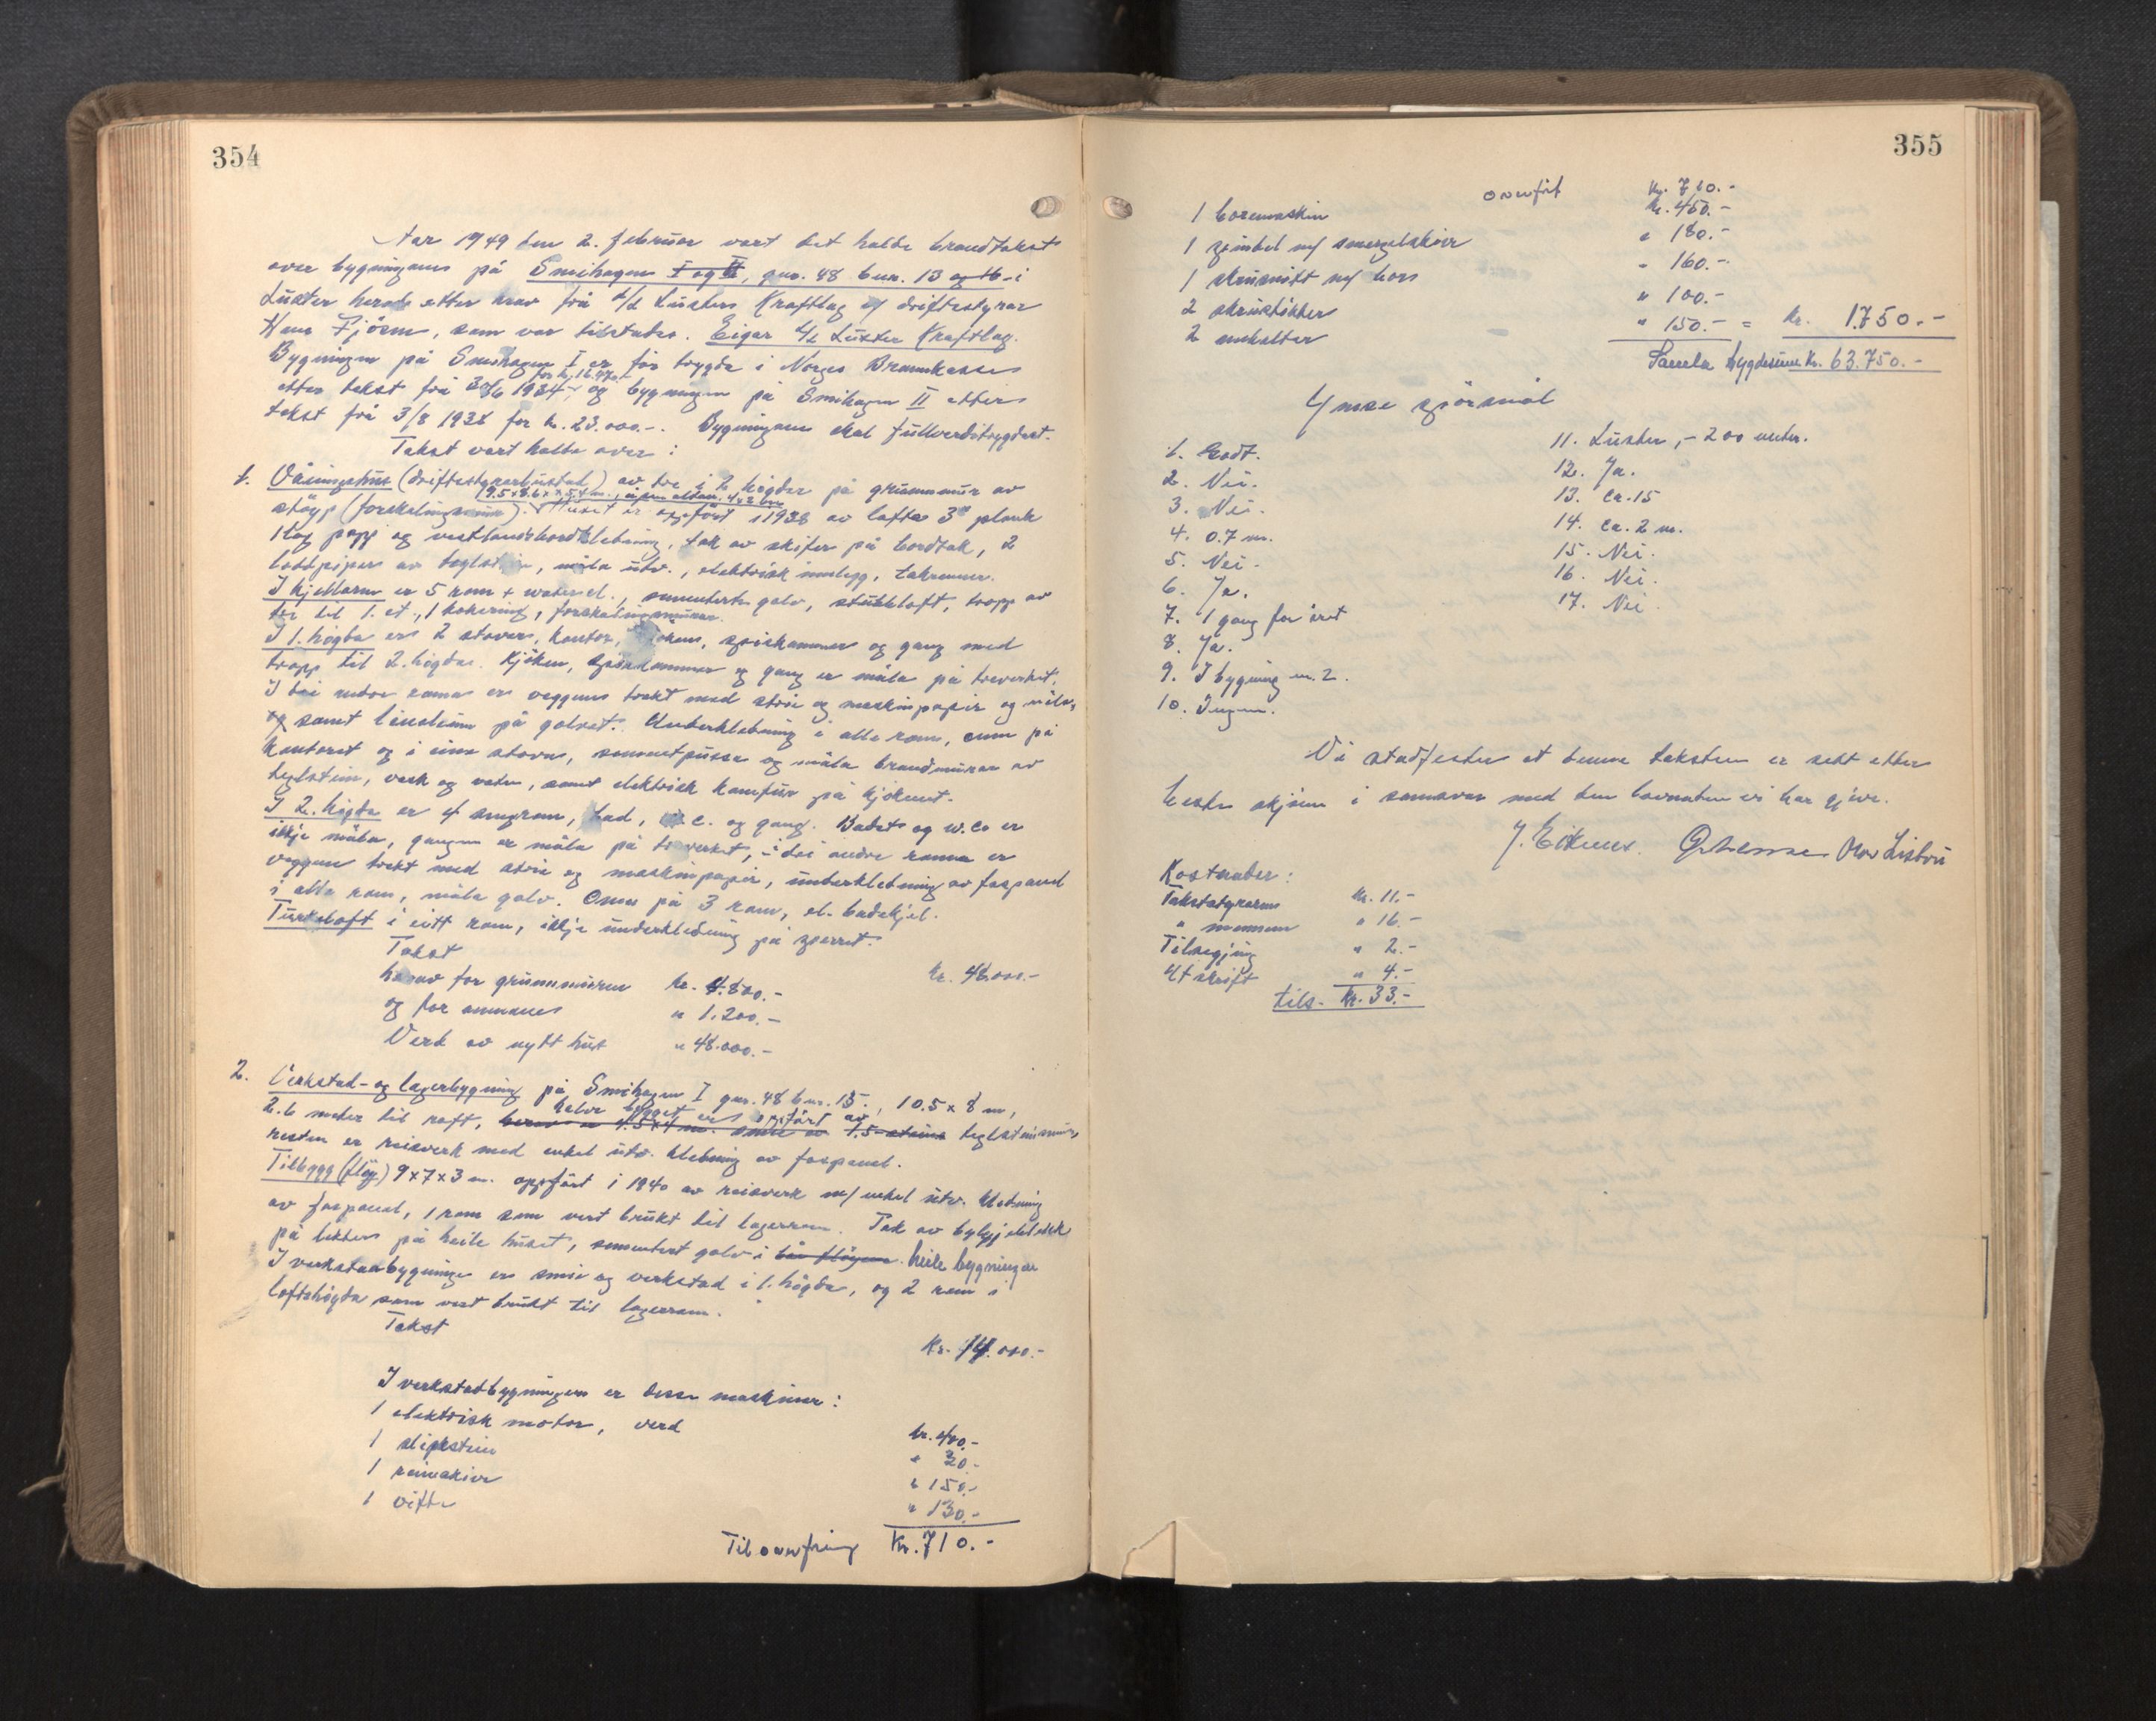 354
Aar 1949 den 2. februar vart det halde brandtakst
over bygningane på Smihagen I og II, gnr. 48 bnr. 13 og 16 i
Luster herad etter krav frå A/L Lusters Kraftlag v/ driftsstyrar
Hans Fjösne, som var tilstades. Eigar A/L Luster Kraftlag.
Bygningen på Smihagen I er för trygda i Norges Brannkasse
for kr. 16.970.-
etter takst frå 30/6 1934, og bygningen på Smihagen II etter
takst frå 3/8 1938 for kr. 23.000.-. Bygningane skal fullverditrygdast.
Takst vart halde over:
1. Våningshus (driftsstyrarbustad) av tre i 2 högder på grunnmur av
9.5 x 8.6 x 5.4 m., open altan 4 x 2 m
støyp (forskalingsmur). Huset er oppfört i 1938 av lafta 3" plank
1 lag papp og vestlandsbordkledning, tak av skifer på bordtak, 2
loddpiper av teglstein, måla utv., elektrisk innlegg, takrenner.
I kjellaren er 5 rom + watercl., sementerte golv, stubbloft, trapp av
tre til 1. et., 1 kokering, forskalingsmurar.
I 1. högda er 2 stover, kontor, kjöken, spiskammer og gang med
trapp til 2. högda. Kjöken, spiskammer og gang er måla på treverket.
I dei andre romma er veggene trekt med strie og maskinpapir og måla,
og samt linoleum på golvet. Underkledning i alle rom, omn på
kontoret og i eine stova, sementpussa og måla brandmurar av
teglstein, vask og vatn, samt elektrisk komfur på kjökenet.
I 2. högda er 4 sengrom, bad, w.c. og gang. Badet og w.c. er
ikkje måla, gangen er måla på treverket, i dei andre romma er
veggene trekt med strie og maskinpapir, underkledning av faspanel
i alle rom, måla golv. Omn på 3 rom, el. badekjel.
Turkeloft i eitt rom, ikkje underkledning på sperret.
Takst kr. 48.000.-
herav for grunnmuren kr. 4.800.-
og for omnane " 1.200.-
Verd av nytt hus " 48.000.-
2. Verkstad- og lagerbygning på Smihagen I gnr. 48 bnr. 13, 10.5 x 8 m,
halve bygget er oppfört av
2.6 meter til raft, herav er 4.5 x 4 m. smie av 1.5 steins teglsteinsmur,
resten er reisverk med enkel utv. kledning av faspanel.
Tilbygg (flöy) 9 x 7 x 3 m. oppfört i 1940 av reisverk m/ enkel utv. kledning
av faspanel, 1 rom som vert brukt til lagerrom. Tak av bylgjeblekk
på lekter på heile huset, sementert golv i flöyen. heile bygningen
I verkstadbygningen er smie og verkstad i 1. högda, og 2 rom i
loftshögda som vert brukt til lagerrom.
Takst kr. 14.000.-
I verkstadbygningen er desse maskiner:
1 elektrisk motor, verd kr. 400.-
1 slipestein " 30.-
1 reimskive " 150.-
1 vifte " 130.-
Til overföring Kr. 710.-
355
overfört Kr. 710.-
1 boremaskin kr. 450.-
1 spindel m/ smergelskive " 180.-
1 skrusnitt m/ bor " 160.-
2 skrustikker " 100.-
2 ambolter " 150.- = kr. 1.750.-
Samla trygdesum kr. 63.750.-
Ymse spörsmål
1. Godt.
2. Nei.
3. Nei.
4. 0.7 m.
5. Nei.
6. Ja.
7. 1 gang for året
8. Ja.
9. I bygning nr. 2.
10. Ingen.
11. Luster, - 200 meter.
12. Ja.
13. ca. 15
14. ca. 2 m.
15. Nei.
16. Nei.
17. Nei.
Vi stadfester at denne taksten er sett etter
beste skjönn i samsvar med den lovnaden vi har gjeve.
Kostnader:
Takststyraren kr. 11.-
" mennene " 16.-
Tilseging " 2.-
Utskrift " 4.-
tils. kr. 33.-